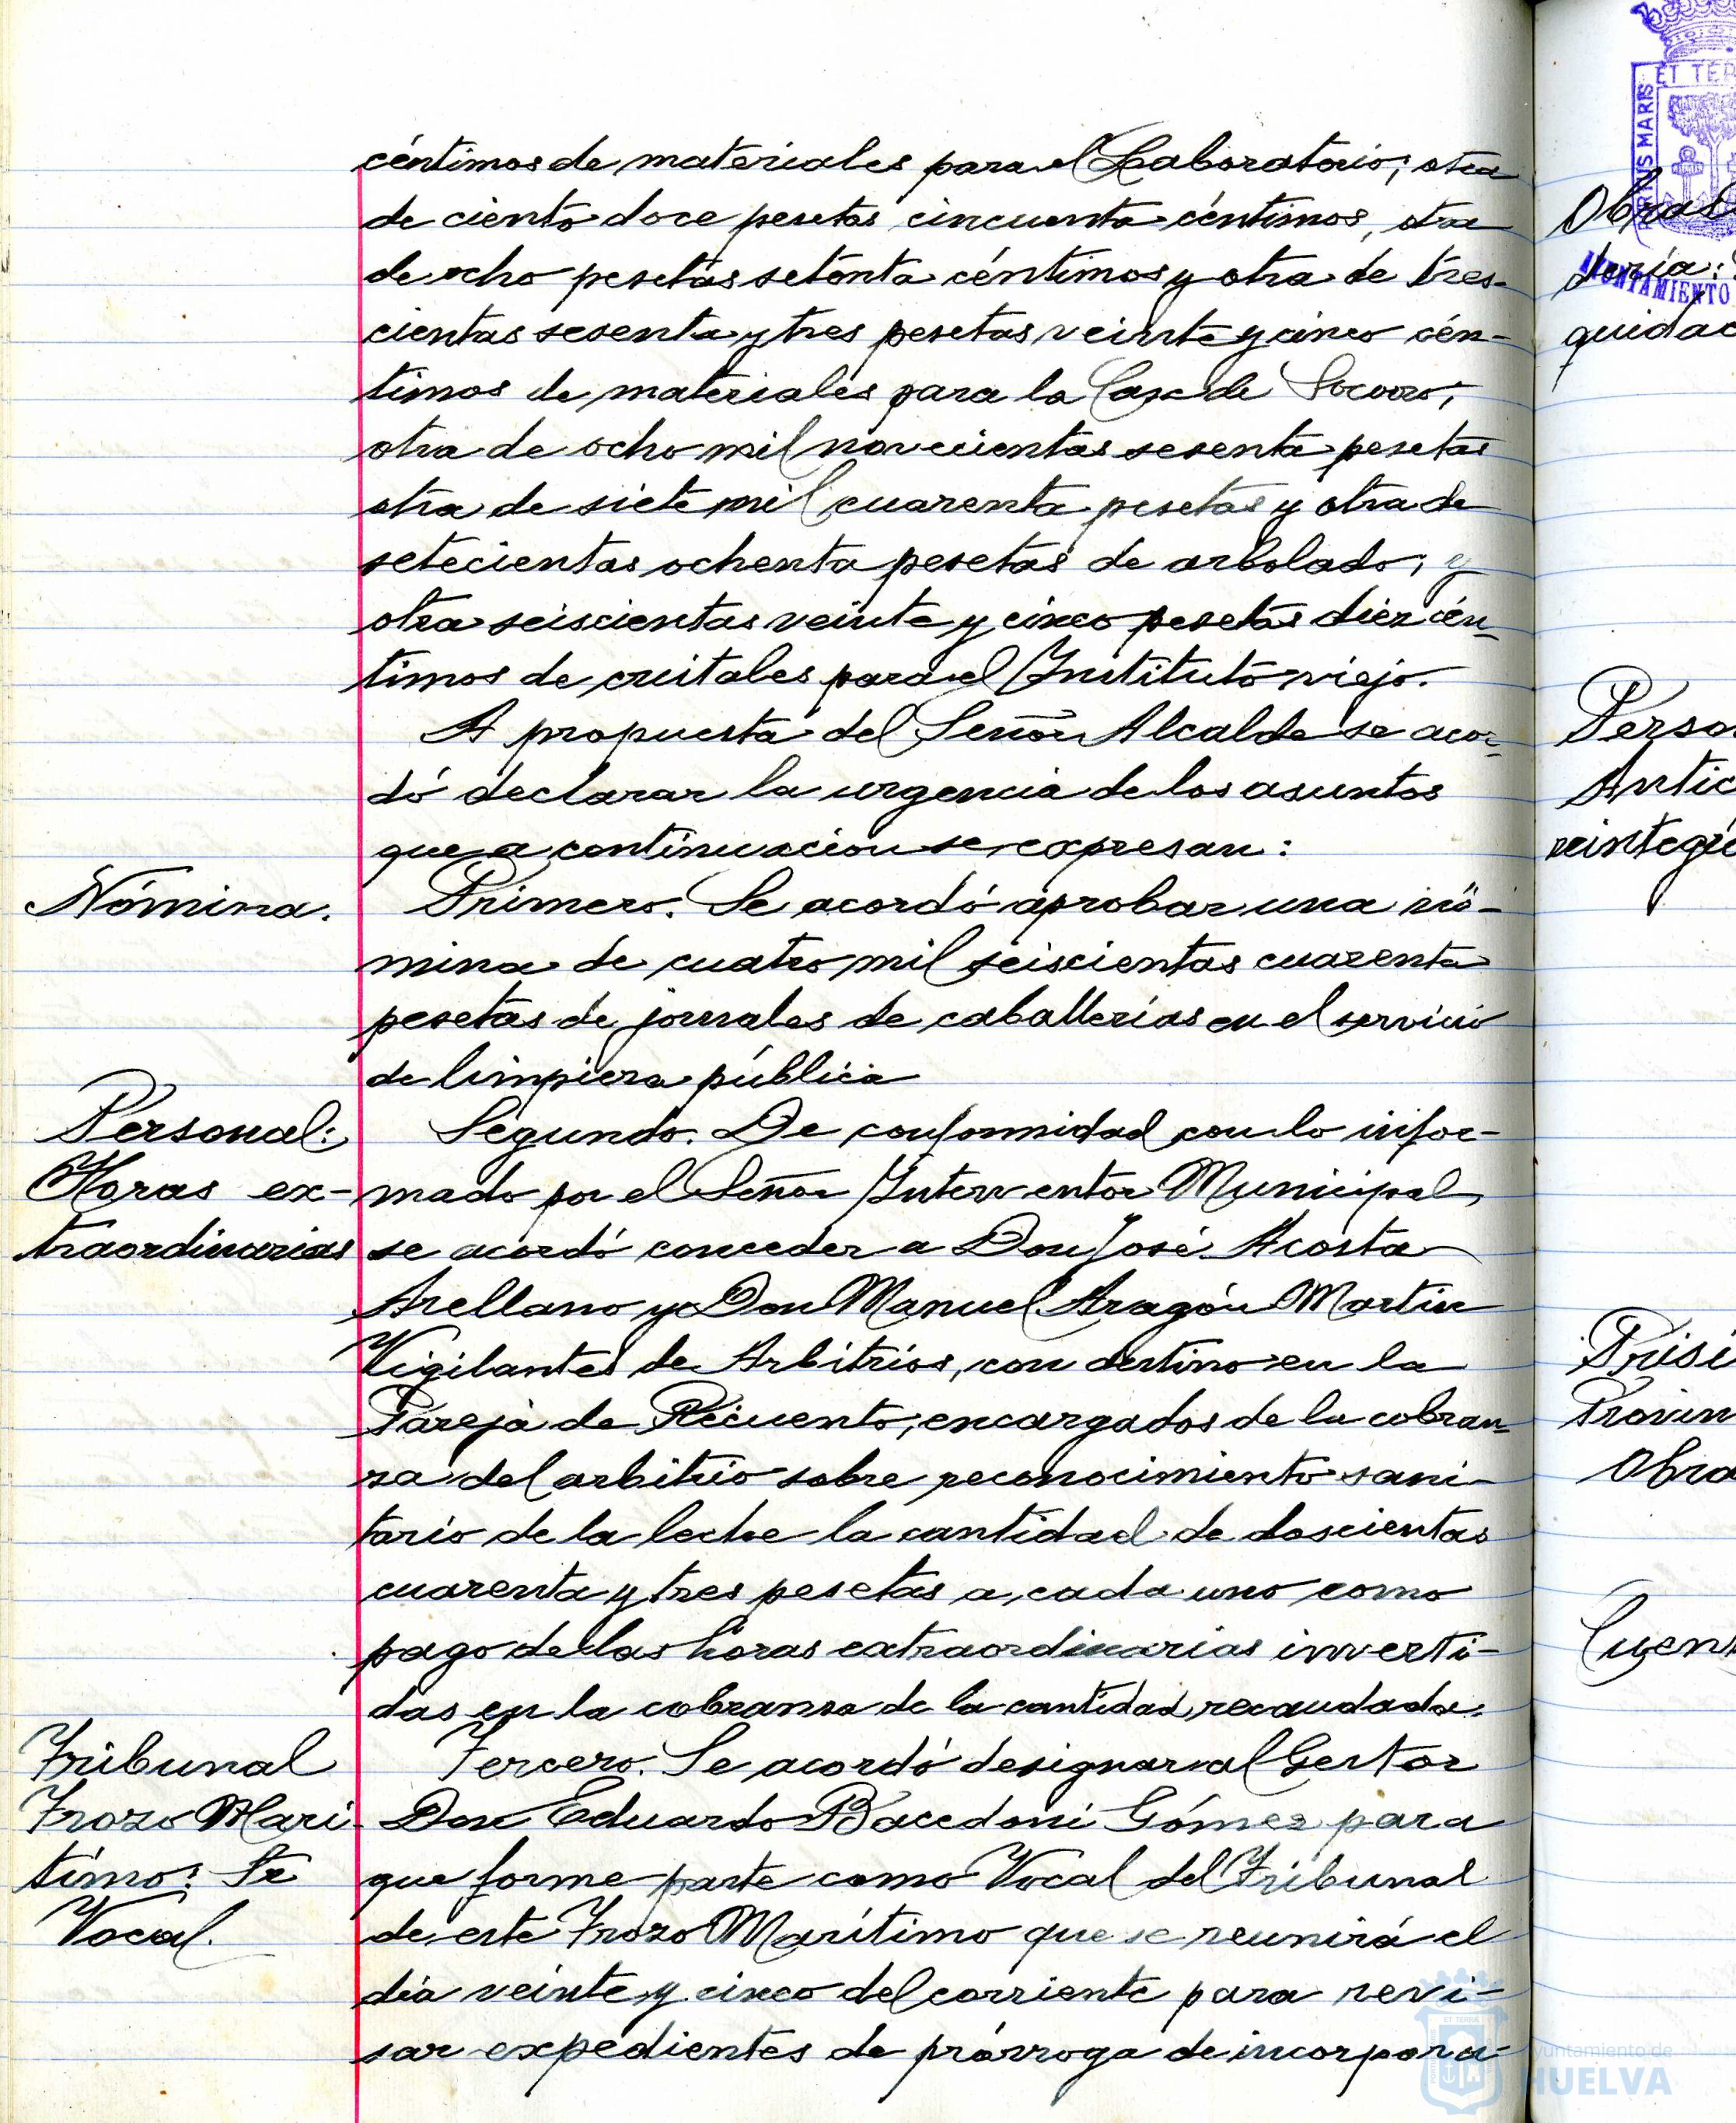 céntimos de materiales para el Laboratorio; otra
de ciento doce pesetas cincuenta céntimos, otra
de ocho pesetas setenta céntimos y otra de tres-
cientas sesenta y tres pesetas veinte y cinco cén-
timos de materiales para la Casa de Socorro;
otra de ocho mil novecientas sesenta pesetas
otra de siete mil cuarenta pesetas y otra de
setecientas ochenta pesetas de arbolado; y
otra seiscientas veinte y cinco pesetas diez cén-
timos de cristales para el Instituto viejo.
A propuesta del Señor Alcalde se acor-
dó declarar la urgencia de los asuntos
que a continuación se expresan:
Nómina.
Primero. Se acordó aprobar una nó-
mina de cuatro mil seiscientas cuarenta
pesetas de jornales de caballerías en el servicio
de limpieza pública
Personal:
Horas ex-
traordinarias
Segundo. De conformidad con lo infor-
mado por el Señor Interventor Municipal,
se acordó conceder a Don José Acosta
Arellano y Don Manuel Aragón Martín
Vigilantes de Arbitrios, con destino en la
Pareja de Recuento, encargados de la cobran-
za del arbitrio sobre reconocimiento sani-
tario de la leche la cantidad de doscientas
cuarenta y tres pesetas a cada uno como
pago de las horas extraordinarias inverti-
das en la cobranza de la cantidad recaudada.
Tribunal
Trozo Marí
timo: Se
Vocal.
Tercero. Se acordó designar al Gestor
Don Eduardo Bacedoni Gómez para
que forme parte como Vocal del Tribunal
de este Trozo Marítimo que se reunirá el
día veinte y cinco del corriente para revi-
sar expedientes de prórroga de incorpora-
ET TER
PORTUS MARIS
AYUNTAMIENTO
Obras
quidac
Perso
Antic
reintegr
Prisi
Provin
Obra
Cuen
Ayuntamiento de
HUELVA